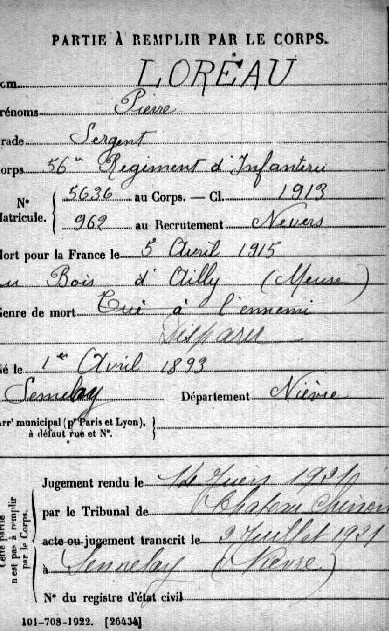 PARTIE À REMPLIR PAR LE CORPS.
om LORÉAU
rénoms Pierre
rade Sergent
orps 56e Régiment d'Infanterie
N° Matricule. { 5636 au Corps. — Cl. 1913
962 au Recrutement Nevers
ort pour la France le 5 Avril 1915
au Bois d'Ailly (Meuse)
enre de mort Tué à l'ennemi
Disparu
é le 1er Avril 1893
Semelay Département Nièvre
arrt municipal (pr Paris et Lyon), à défaut rue et N°.
Jugement rendu le 14 Juin 1921
par le Tribunal de Chateau Chinon
acte ou jugement transcrit le 3 Juillet 1921
à Semelay (Nièvre)
N° du registre d'état civil
Cette partie n'est pas à remplir par le Corps.
101-708-1922. [26434]